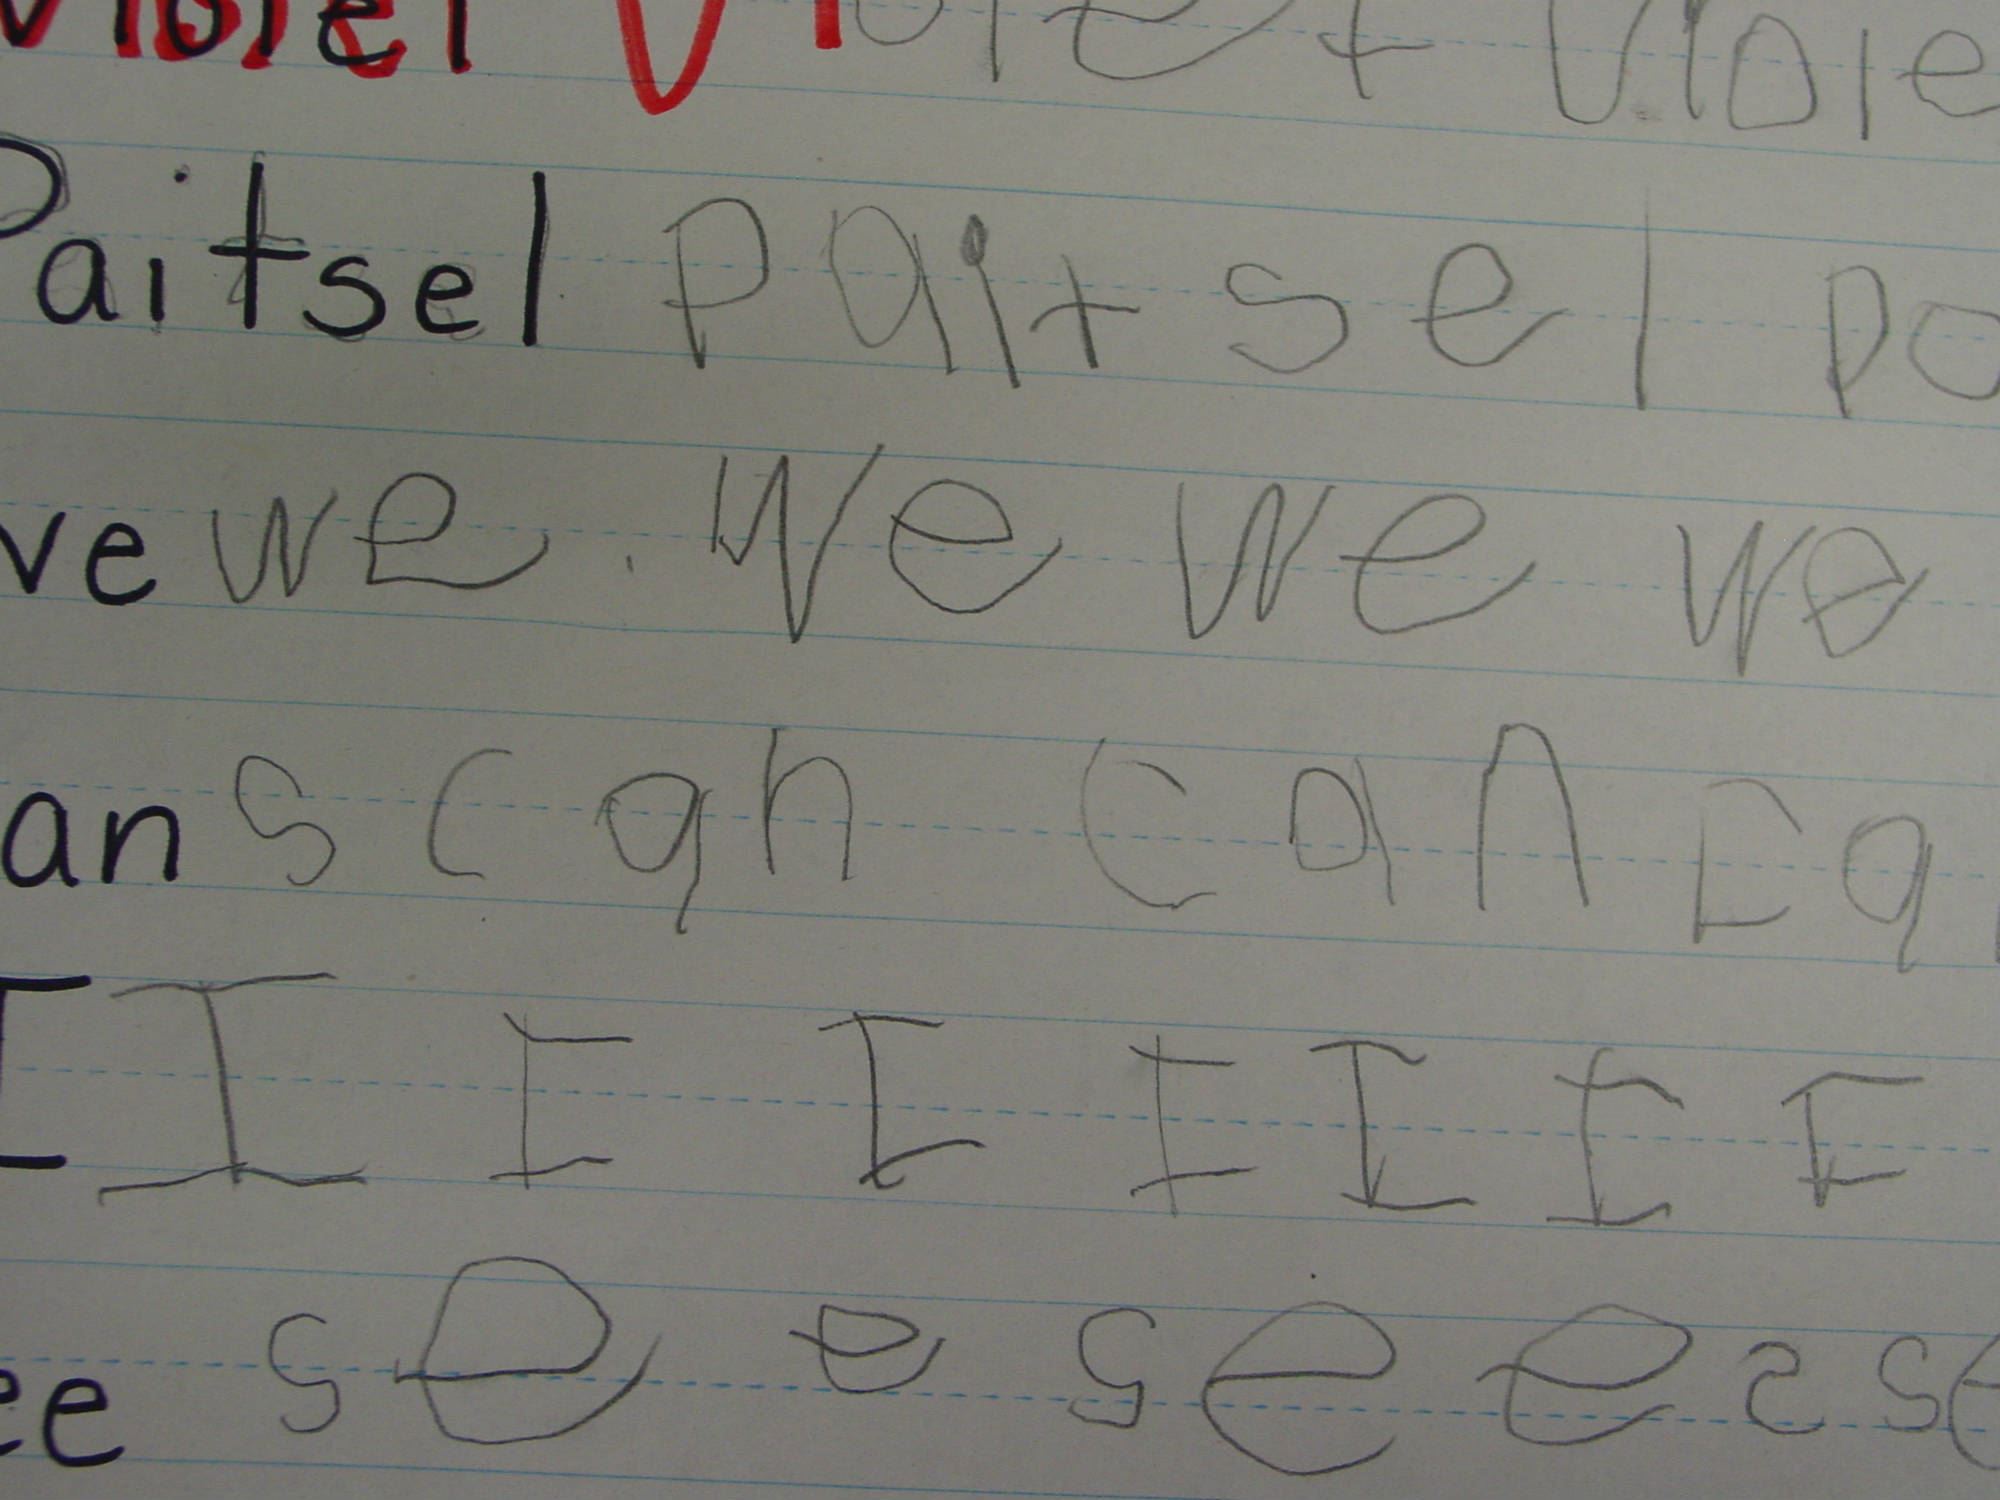 Violet Violet Viole
Paitsel Paitsel pa
we we we we we
an s can can ca
I I I I I I I I
ee se e s e e s se